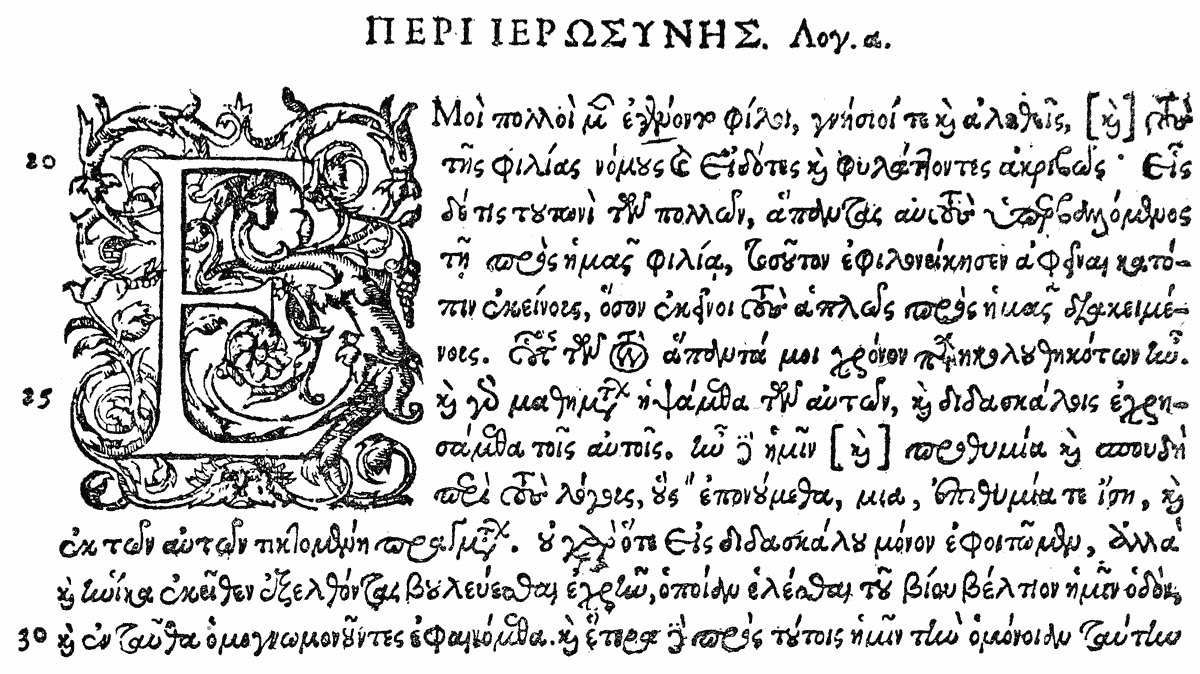 ΠΕΡΙ ΙΕΡΩΣΥΝΗΣ. Λογ. α.
ΕΜοὶ πολλοὶ μὲν ἐγένοντο φίλοι, γνήσιοί τε καὶ ἀληθεῖς, [καὶ] τοὺς
20 τῆς φιλίας νόμους καὶ εἰδότες καὶ φυλάττοντες ἀκριβῶς· Εἷς
δέ τις τουτωνὶ τῶν πολλῶν, ἅπαντας αὐτοὺς ὑπερβαλλόμενος
τῇ πρὸς ἡμᾶς φιλίᾳ, τοσοῦτον ἐφιλονείκησεν ἀφεῖναι κατό-
πιν ἐκείνους, ὅσον ἐκεῖνοι τοὺς ἁπλῶς πρὸς ἡμᾶς διακειμέ-
νους. Οὗτος τῶν τὸν ἅπαντά μοι χρόνον παρηκολουθηκότων ἦν.
25 καὶ γὰρ μαθημάτων ἡψάμεθα τῶν αὐτῶν, καὶ διδασκάλοις ἐχρη-
σάμεθα τοῖς αὐτοῖς. ἦν δὲ ἡμῖν [καὶ] προθυμία καὶ σπουδὴ
περὶ τοὺς λόγους, οὓς " ἐπονούμεθα, μία, ἐπιθυμία τε ἴση, καὶ
ἐκ τῶν αὐτῶν τικτομένη πραγμάτων. οὐ γὰρ ὅτε εἰς διδασκάλου μόνον ἐφοιτῶμεν, ἀλλὰ
καὶ ἡνίκα ἐκεῖθεν ἐξελθόντας βουλεύεσθαι ἐχρῆν, ὁποίαν ἑλέσθαι τοῦ βίου βέλτιον ἡμῖν ὁδόν,
30 καὶ ἐνταῦθα ὁμογνωμονοῦντες ἐφαινόμεθα. καὶ ἕτερα δὲ πρὸς τούτοις ἡμῖν τὴν ὁμόνοιαν ταύτην